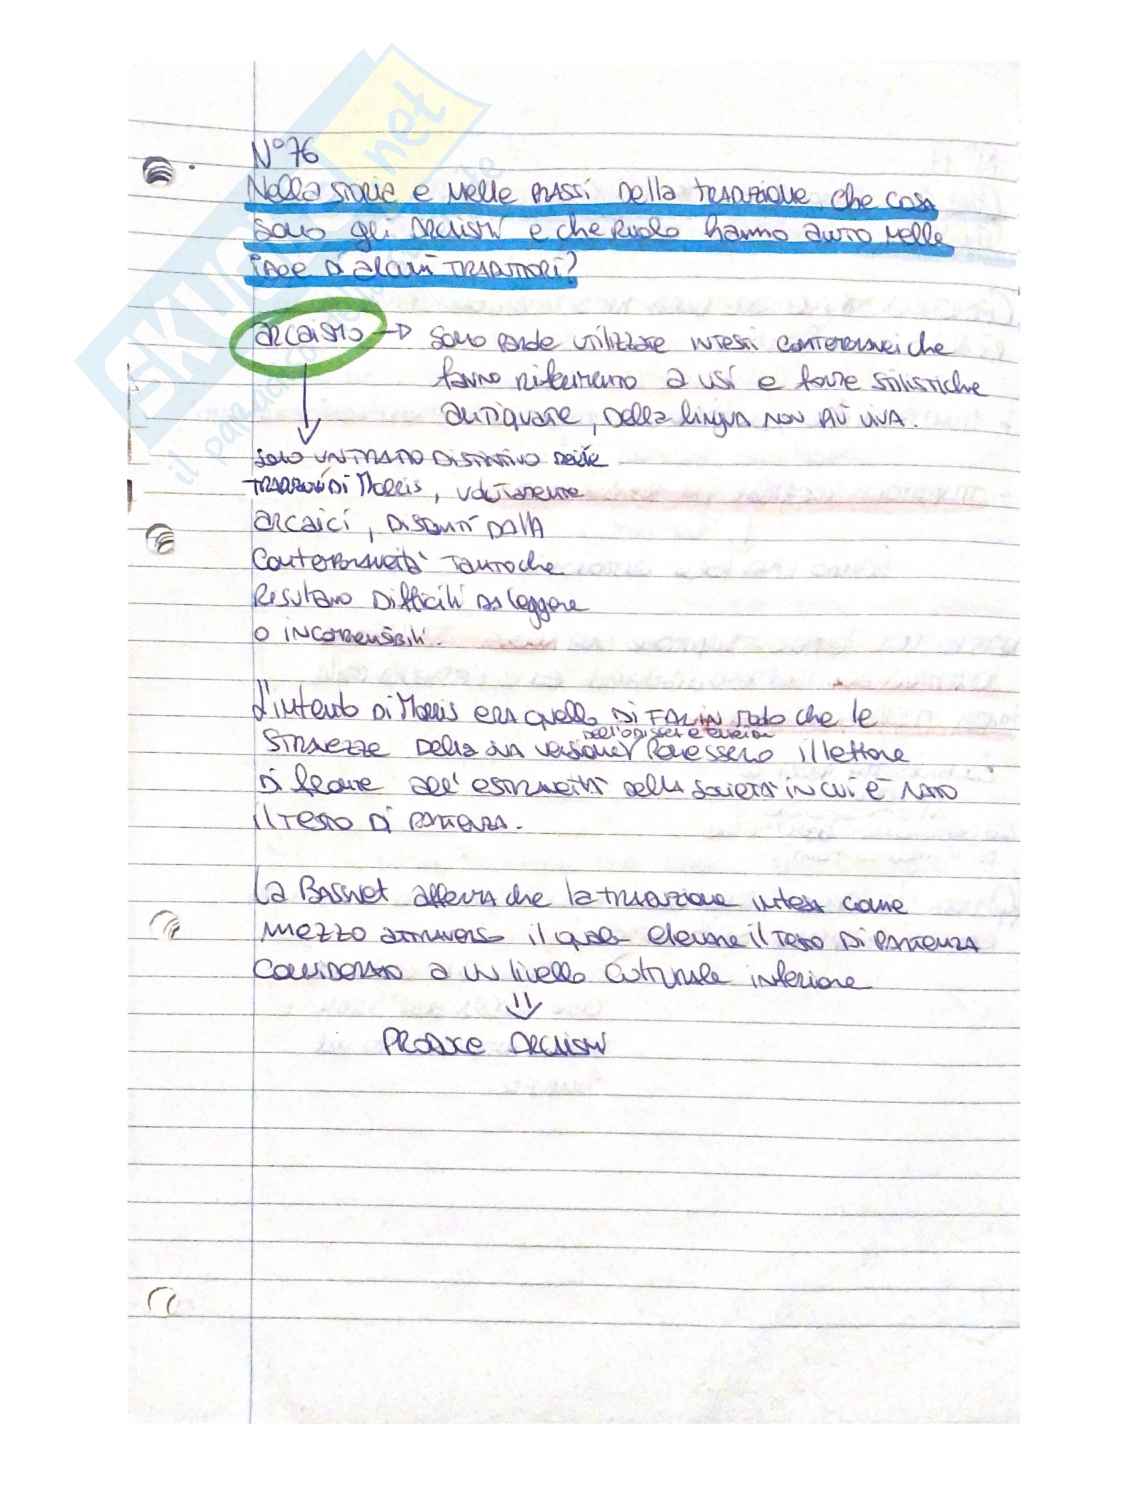 N°76
Nella storia e nelle prassi della traduzione, che cosa
sono gli arcaismi e che ruolo hanno avuto nelle
idee di alcuni traduttori?
arcaismo → sono parole utilizzate in testi contemporanei che
fanno riferimento a usi e forme stilistiche
antiquate, della lingua non più viva.
sono un tratto distintivo delle
traduzioni di Morris, volutamente
arcaici, distanti dalla
contemporaneità tanto che
risultano difficili da leggere
o incomprensibili.
L'intento di Morris era quello di far in modo che le
dell'odissea e eneide
stranezze della sua versione ponessero il lettore
di fronte all'estraneità della società in cui è nato
il testo di partenza.
La Basnet afferma che la traduzione intesa come
mezzo attraverso il quale elevare il testo di partenza
considerato a un livello culturale inferiore
⇓
PRODUCE ARCAISMI
SKUOLA.net
il paradiso dello studente